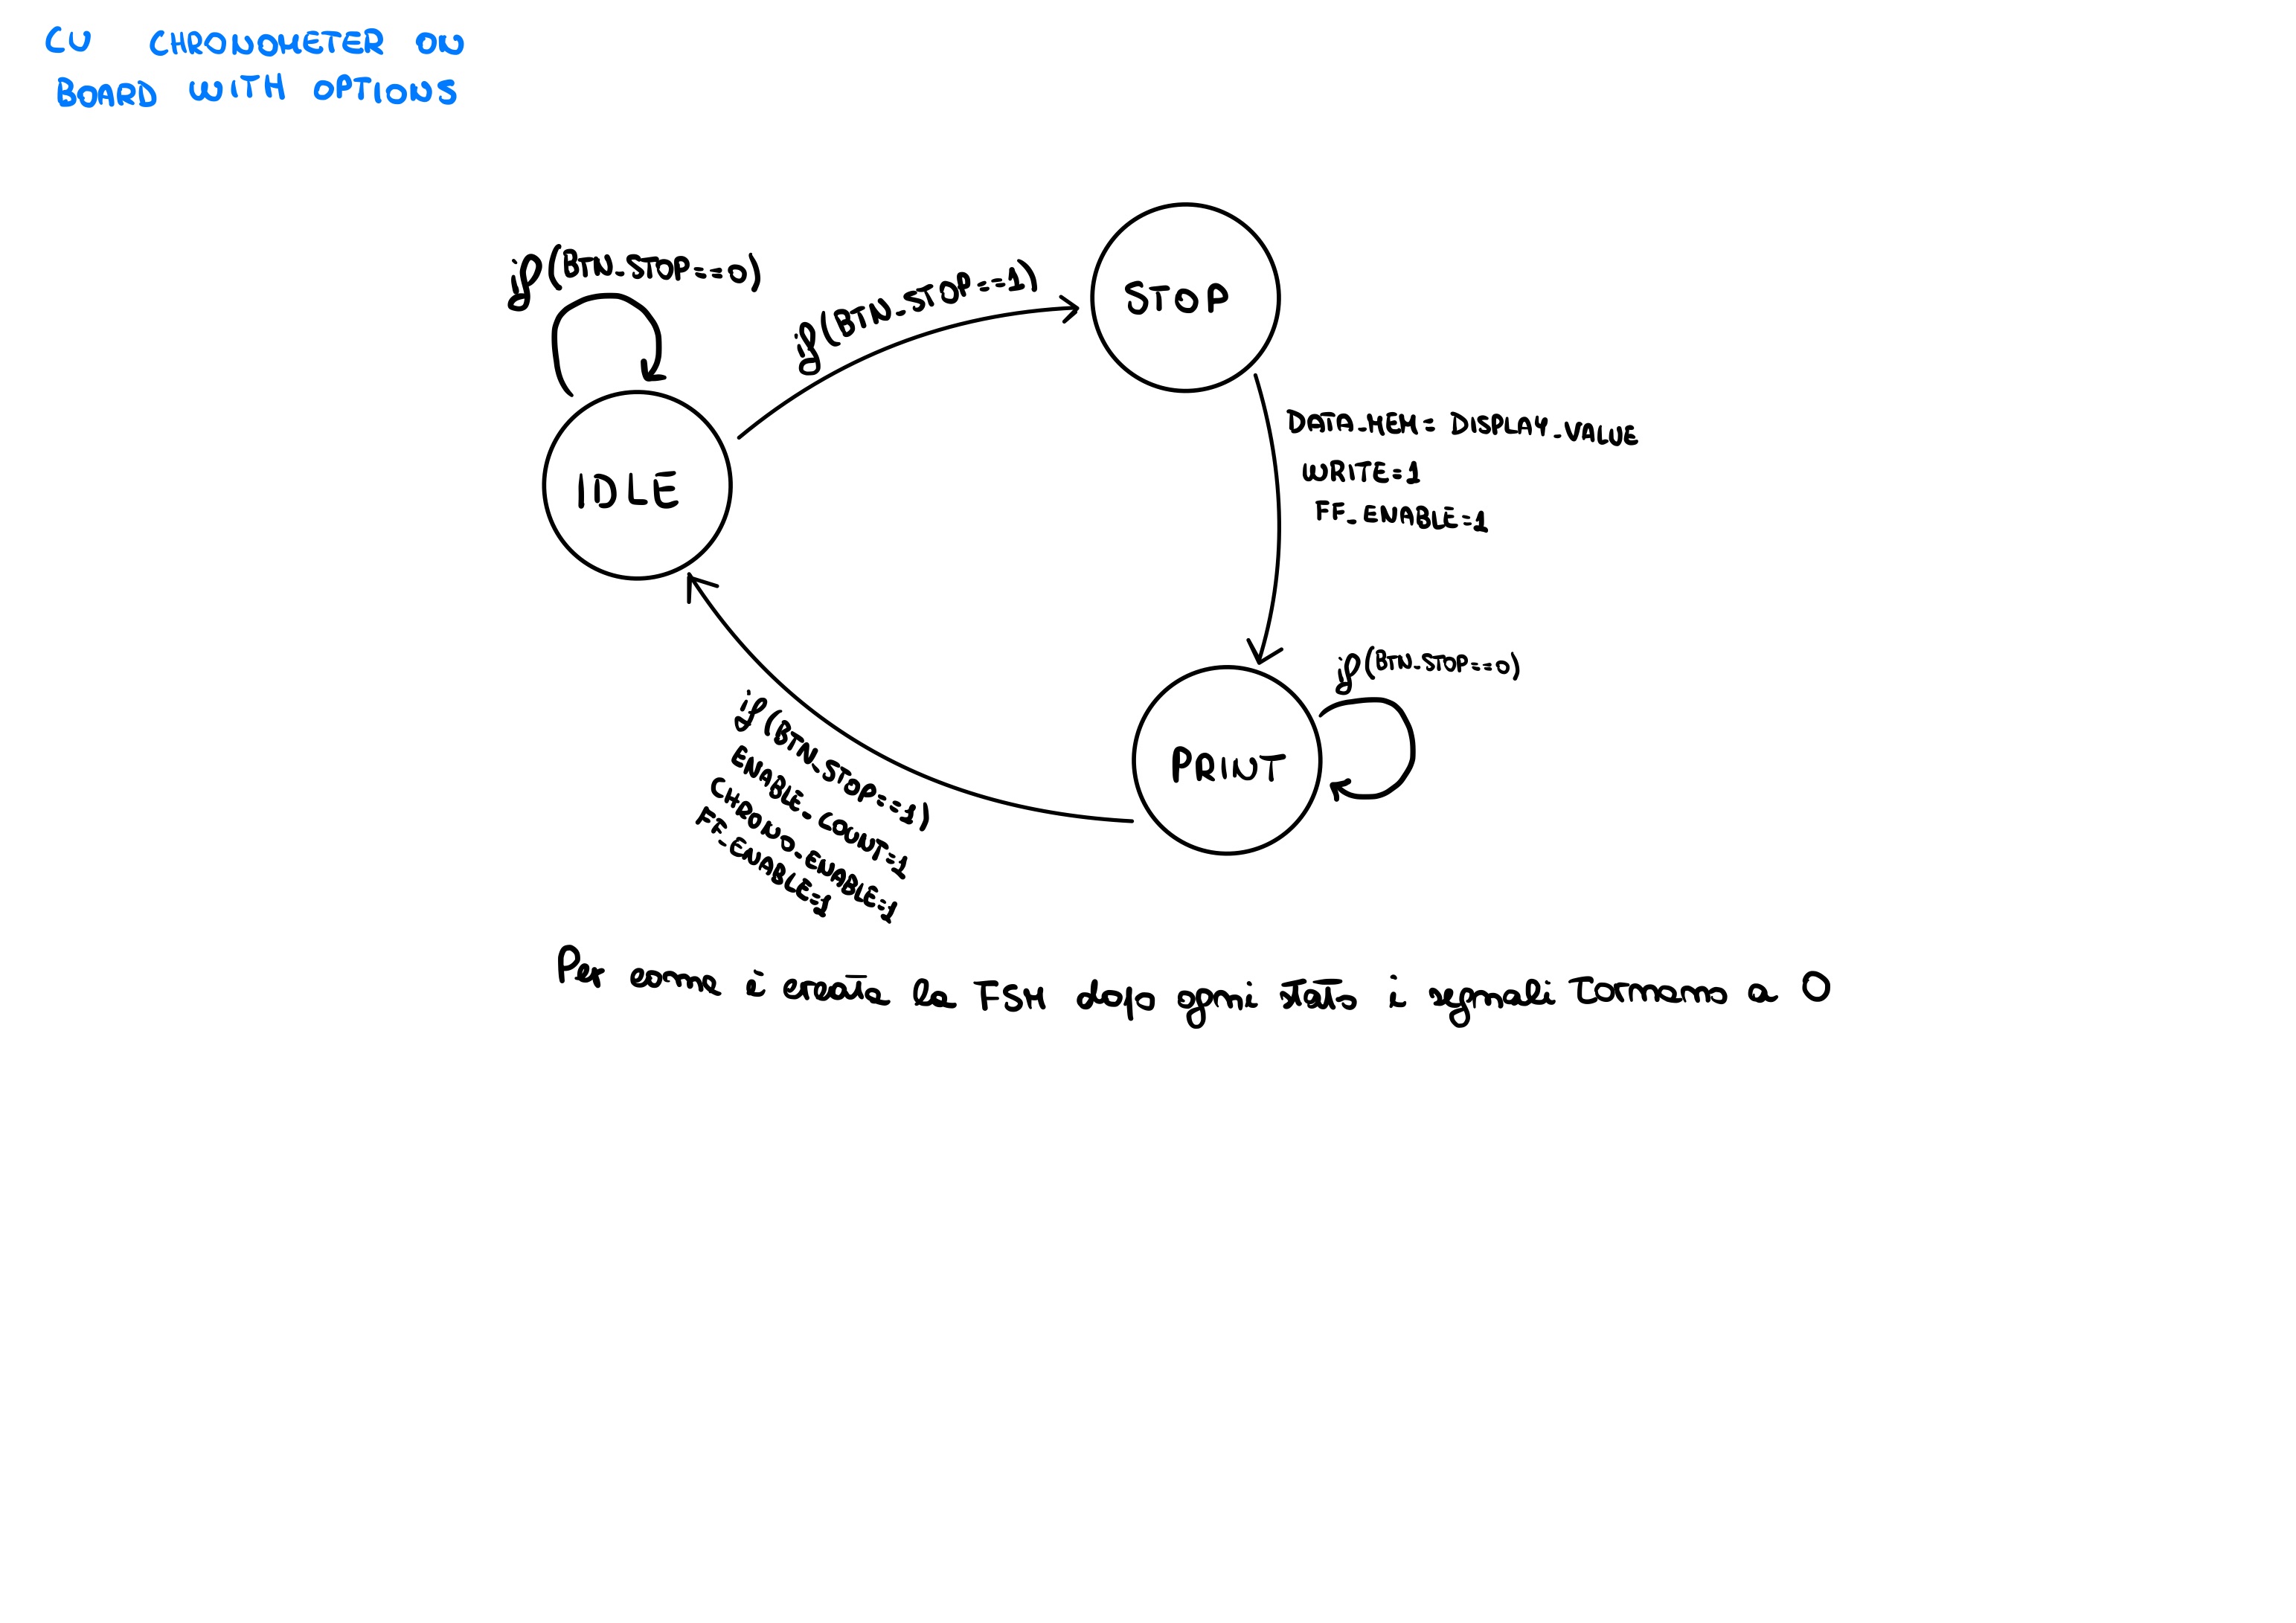 CU CHRONOMETER ON
BOARD WITH OPTIONS
if(BTN_STOP==0)
if(BTN_STOP==1)
STOP
IDLE
DATA_MEM= DISPLAY_VALUE
WRITE=1
FF_ENABLE=1
if(BTN_STOP==0)
PRINT
if(BTN_STOP==1)
ENABLE_COUNT=1
CHRONO_ENABLE=1
FF_ENABLE=1
Per come è creata la FSM dopo ogni stato i segnali tornano a 0